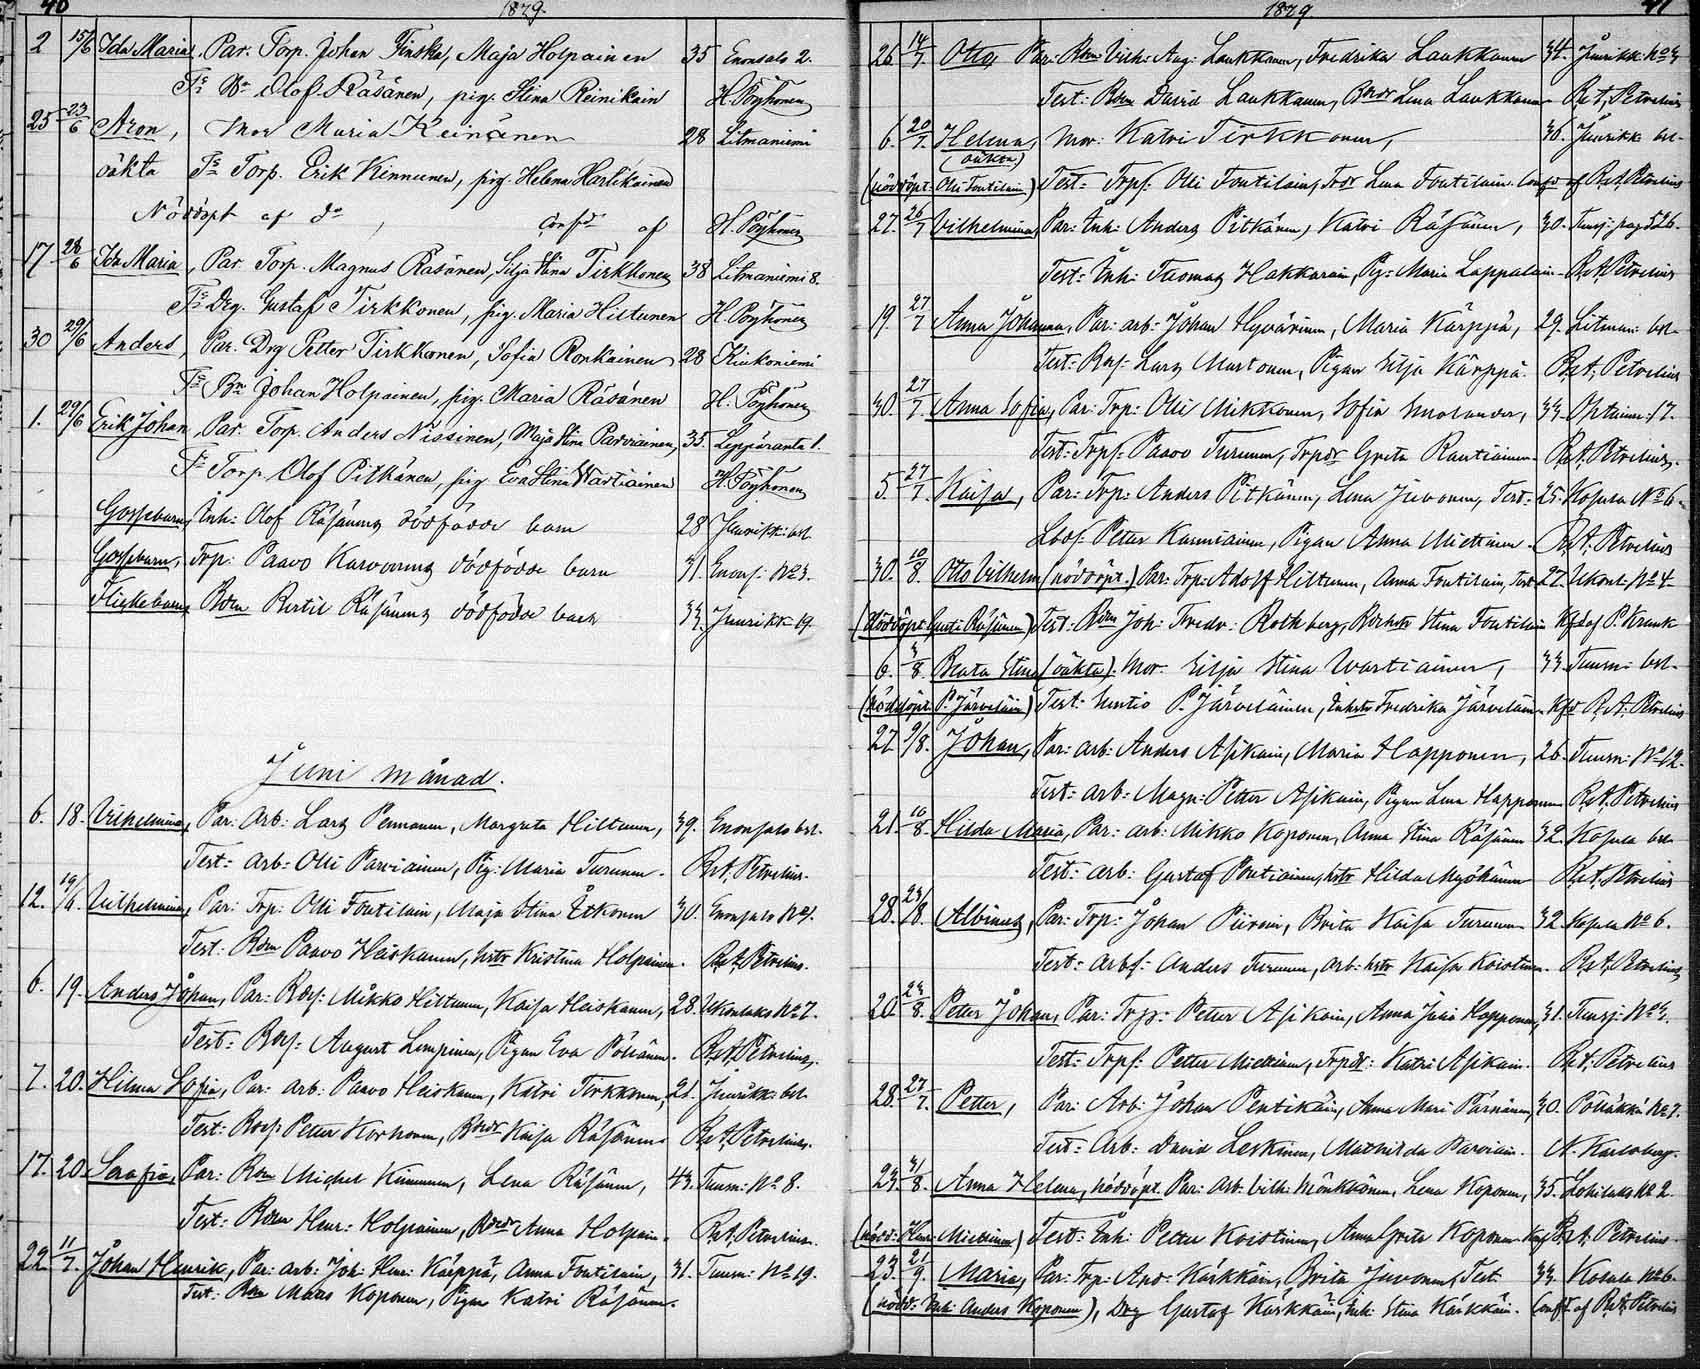 40
1879.
2 15/6 Ida Maria, Par. Torp. Johan Finska, Maja Holpainen 35 Enonsalo 2.
Fr Bn Olof Räsänen, pig. Stina Reinikain H. Pöyhönen
25 23/6 Aron, Mor Maria Keinänen 28 Litmaniemi
oäkta Fr Torp. Erik Kinnunen, pig. Helena Hartikainen
Nöddöpt af do, Confdt af H. Pöyhönen
17 28/6 Ida Maria, Par. Torp. Magnus Räsänen, Silja Stina Tirkkonen 38 Litmaniemi 8.
Fr Drg. Gustaf Tirkkonen, pig. Maria Hiltunen H. Pöyhönen
30 29/6 Anders, Par. Drg Petter Tirkkonen, Sofia Ronkainen 28 Kiukoniemi
Fr Bn Johan Holpainen, pig. Maria Räsänen H. Pöyhönen
1. 29/6 Erik Johan, Par. Torp. Anders Nissinen, Maja Stina Parviainen, 35. Leppäranta 1.
Fr Torp. Olof Pitkänen, pig. Eva Stina Wartiainen H. Pöyhönen
Gossebarn, Inh: Olof Räsänens dödfödde barn 28 Juurikk: bst.
Gossebarn, Trp: Paavo Karvonens dödfödde barn 31. Enons: No 3.
Flickebarn, Bdn Bertil Räsänens dödfödde barn 33. Juurikk 19
Juni månad.
6. 18. Vilhelmina, Par: Arb: Lars Pennanen, Margreta Hiltunen, 39. Enonsalo bst.
Test: Arb: Olli Parviainen, Pig: Maria Turunen. R.A. Petrelius.
12. 19/6. Vilhelmina, Par: Trp: Olli Tontilain, Maja Stina Itkonen 30. Enonsalo No 1.
Test: Bdn Paavo Heiskanen, hstr Kristina Holpainen. R.A. Petrelius.
6. 19. Anders Johan, Par: Bdf: Mikko Hiltunen, Kaisa Heiskanen, 28. Ukonlaks No 7.
Test: Bdf: August Limpinen, Pigan Eva Pölönen. R.A. Petrelius.
7. 20. Hilma Sofia, Par: Arb: Paavo Heiskanen, Katri Tirkkonen, 21. Juurikk: bst.
Test: Bdf: Petter Korhonen, Bdr Kaisa Räsänen. R.A. Petrelius.
17. 20. Serafia, Par: Bdn Michel Kinnunen, Lena Räsänen, 43. Tuusn: No 8.
Test: Bdn Henr: Holpainen, Bdr Anna Holpain. R.A. Petrelius.
22 11/7. Johan Henrik, Par: Arb: Joh: Henr: Käppä, Anna Tontilain, 31. Tuusn: No 19.
Test: Bdn Maas Koponen, Pigan Katri Räsänen.
1879
41
26 14/7. Otto, Par: Bdn: Vilh: Aug: Laukkanen, Fredrika Laukkanen 34. Juurikk: No 3
Test: Bdn David Laukkanen, Bdr Lena Laukkanen R.A. Petrelius
6. 20/7. Helena, Mor: Katri Tirkkonen, 36. Juurikk bst.
(oäkta)
(nöddöpt: Olli Tontilain) Test: Trpf: Olli Tontilain, Trdr Lena Tontilain. Confd af R.A. Petrelius
27. 26/7 Vilhelmina, Par: Inh: Anders Pitkänen, Katri Räsänen, 30. Tuusj: pag 526.
Test: Inh: Thomas Hakkarain, Pig: Maria Lappalain R.A. Petrelius
19. 27/7 Anna Johanna, Par: Arb: Johan Hyvärinen, Maria Kärppä, 29. Litman: bst.
Test: Bdf: Lars Mustonen, Pigan Silja Kärppä. R.A. Petrelius
30. 27/7 Anna Sofia, Par: Trp: Olli Mikkonen, Sofia 33.
Test: Trpf: Paavo Turunen, Trpdr Greta Rautiainen R.A. Petrelius.
5. 27/7. Kaisa, Par: Trp: Anders Pitkänen, Lena Juvonen, Test: 25. Kosula No 6.
Petter Anna Miettinen R.A. Petrelius
30. 10/8. Otto Vilhelm (nöddöpt.) Par: Trp: Adolf Hiltunen, Anna Tontilain, Test 27. Ukonl: No 4
(Nöddöpt Räsänen) Test: Bdn Joh: Fredr: Rothberg, Stina Tontilain Kfd af P. Krank
6. 3/8. Beata Stina (oäkta). Mor. Silja Stina Wartiainen, 33. Tuusn: bst.
(Nöddöpt P. Järveläin) Test: P. Järveläinen, Fredrika Järveläin. Kfd R.A. Petrelius
27. 9/8. Johan, Par: Arb: Anders Asikain, Maria Happonen, 26. Tuusn: No 12.
Test: Arb: Magn: Petter Asikain, Pigan Lena Happonen R.A. Petrelius
21. 10/8. Hilda Maria, Par: Arb: Mikko Koponen, Anna Stina Räsänen 32. Kosula bst.
Test: Arb: Gustaf hstr Hilda Myöhänen R.A. Petrelius
28. 24/8. Albinus, Par: Trp: Johan Piiroin, Brita Kaisa Turunen 32. Kosula No 6.
Test: Arbf: Anders Turunen, Arb: hstr Kaisa Koistinen. R.A. Petrelius
20. 24/8. Petter Johan, Par: Trp: Petter Asikain, Anna Happonen, 31. Tuusj: No
Test: Trpf: Petter Miettinen, Trpdr: Katri Asikain. R.A. Petrelius
28. 27/7. Petter, Par: Arb: Johan Pentikäin, Anna Mari Pärnänen, 30. No 7.
Test: Arb: David Leskinen, Mathilda Parviain. N. Karlsberg.
23. 31/8. Anna Helena, nöddöpt. Par: Arb: Vilh: Mönkkönen, Lena Koponen, 35. Lohilaks No 2.
(nödd: Miettinen) Test: Inh: Petter Koistinen, Anna Greta Koponen R.A. Petrelius
23. 21/9. Maria, Par: Trp: And: Kärkkäin, Brita Juvonen, Test: 33. Kosula No 6.
(nödd: Inh: Anders Koponen), Drg Gustaf Kärkkäin, Inh: Stina Kärkkäin. Confd af R.A. Petrelius